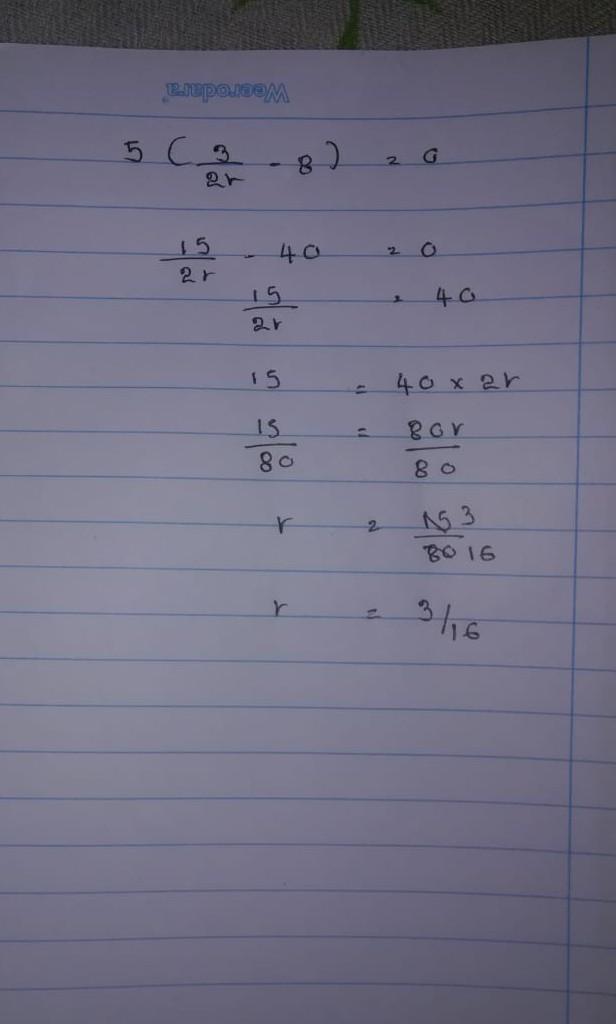 Weerodara
5 ( 3/2r - 8 ) = 0
15/2r - 40 = 0
15/2r = 40
15 = 40 × 2r
15/80 = 80r/80
r = 15 3/80 16
r = 3/16